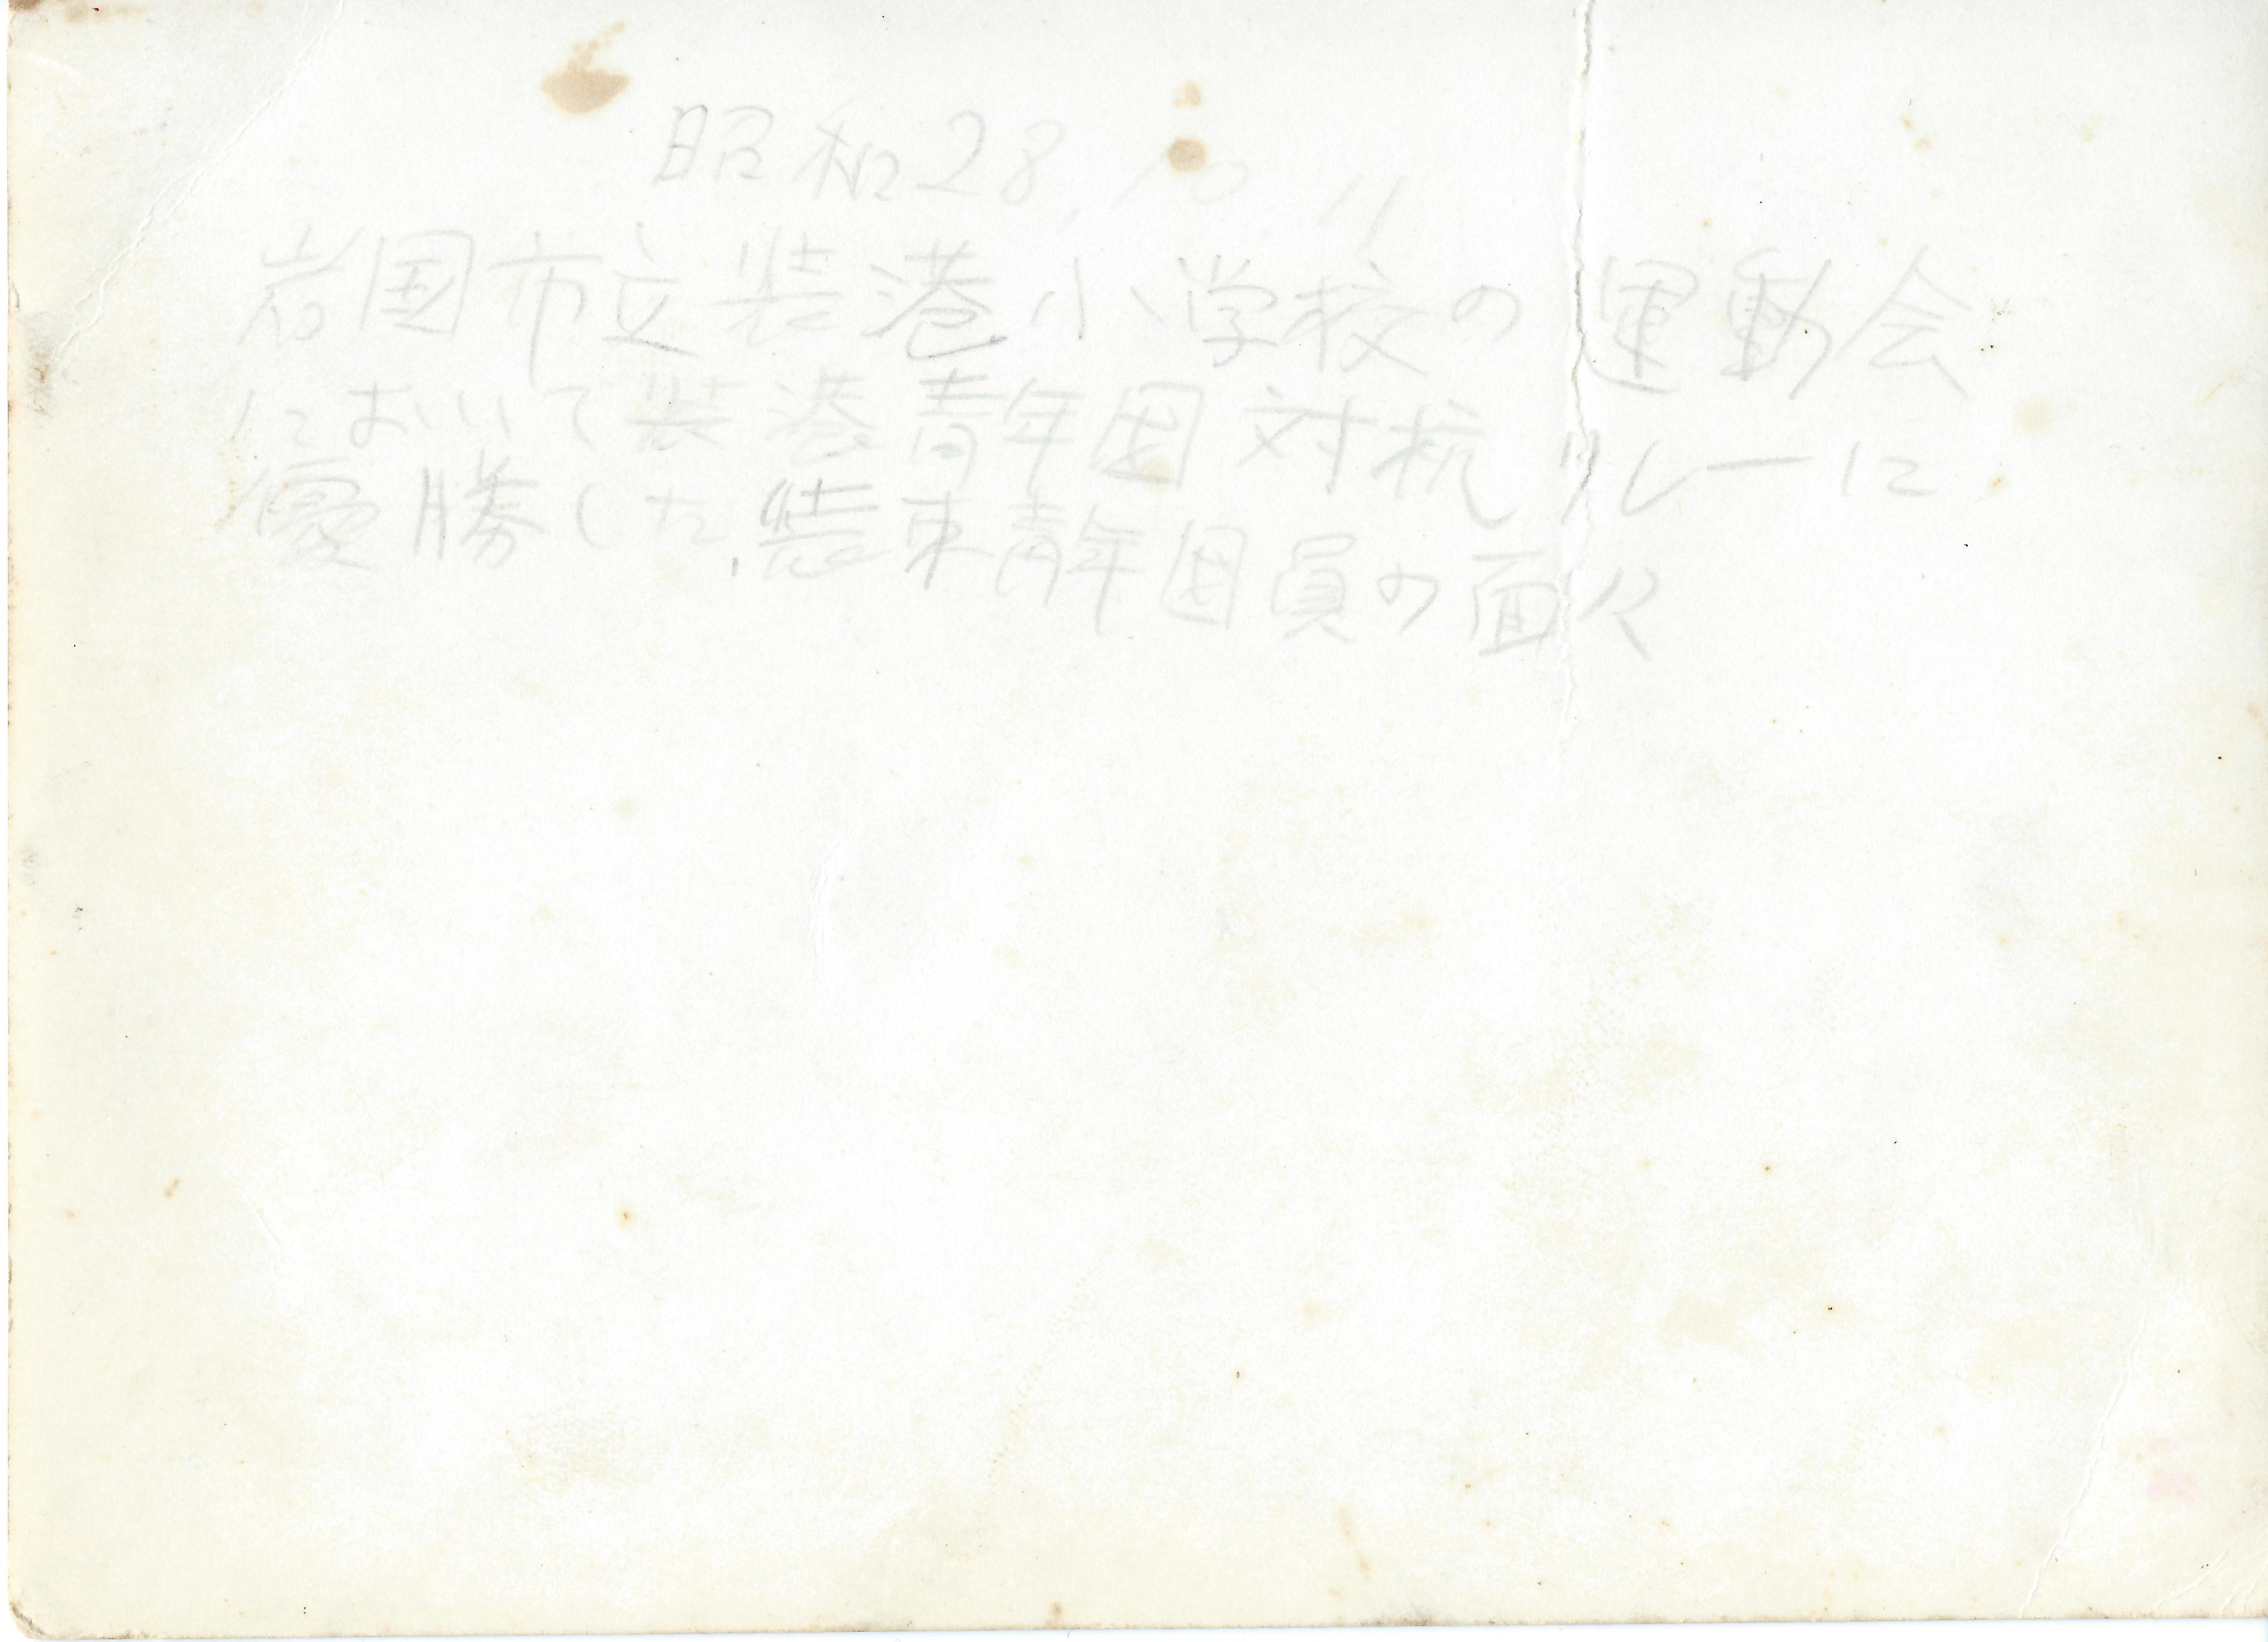 昭和28.10 11
岩国市立装港小学校の運動会
において装港青年団対抗リレーに
優勝した、装束青年団員の面々